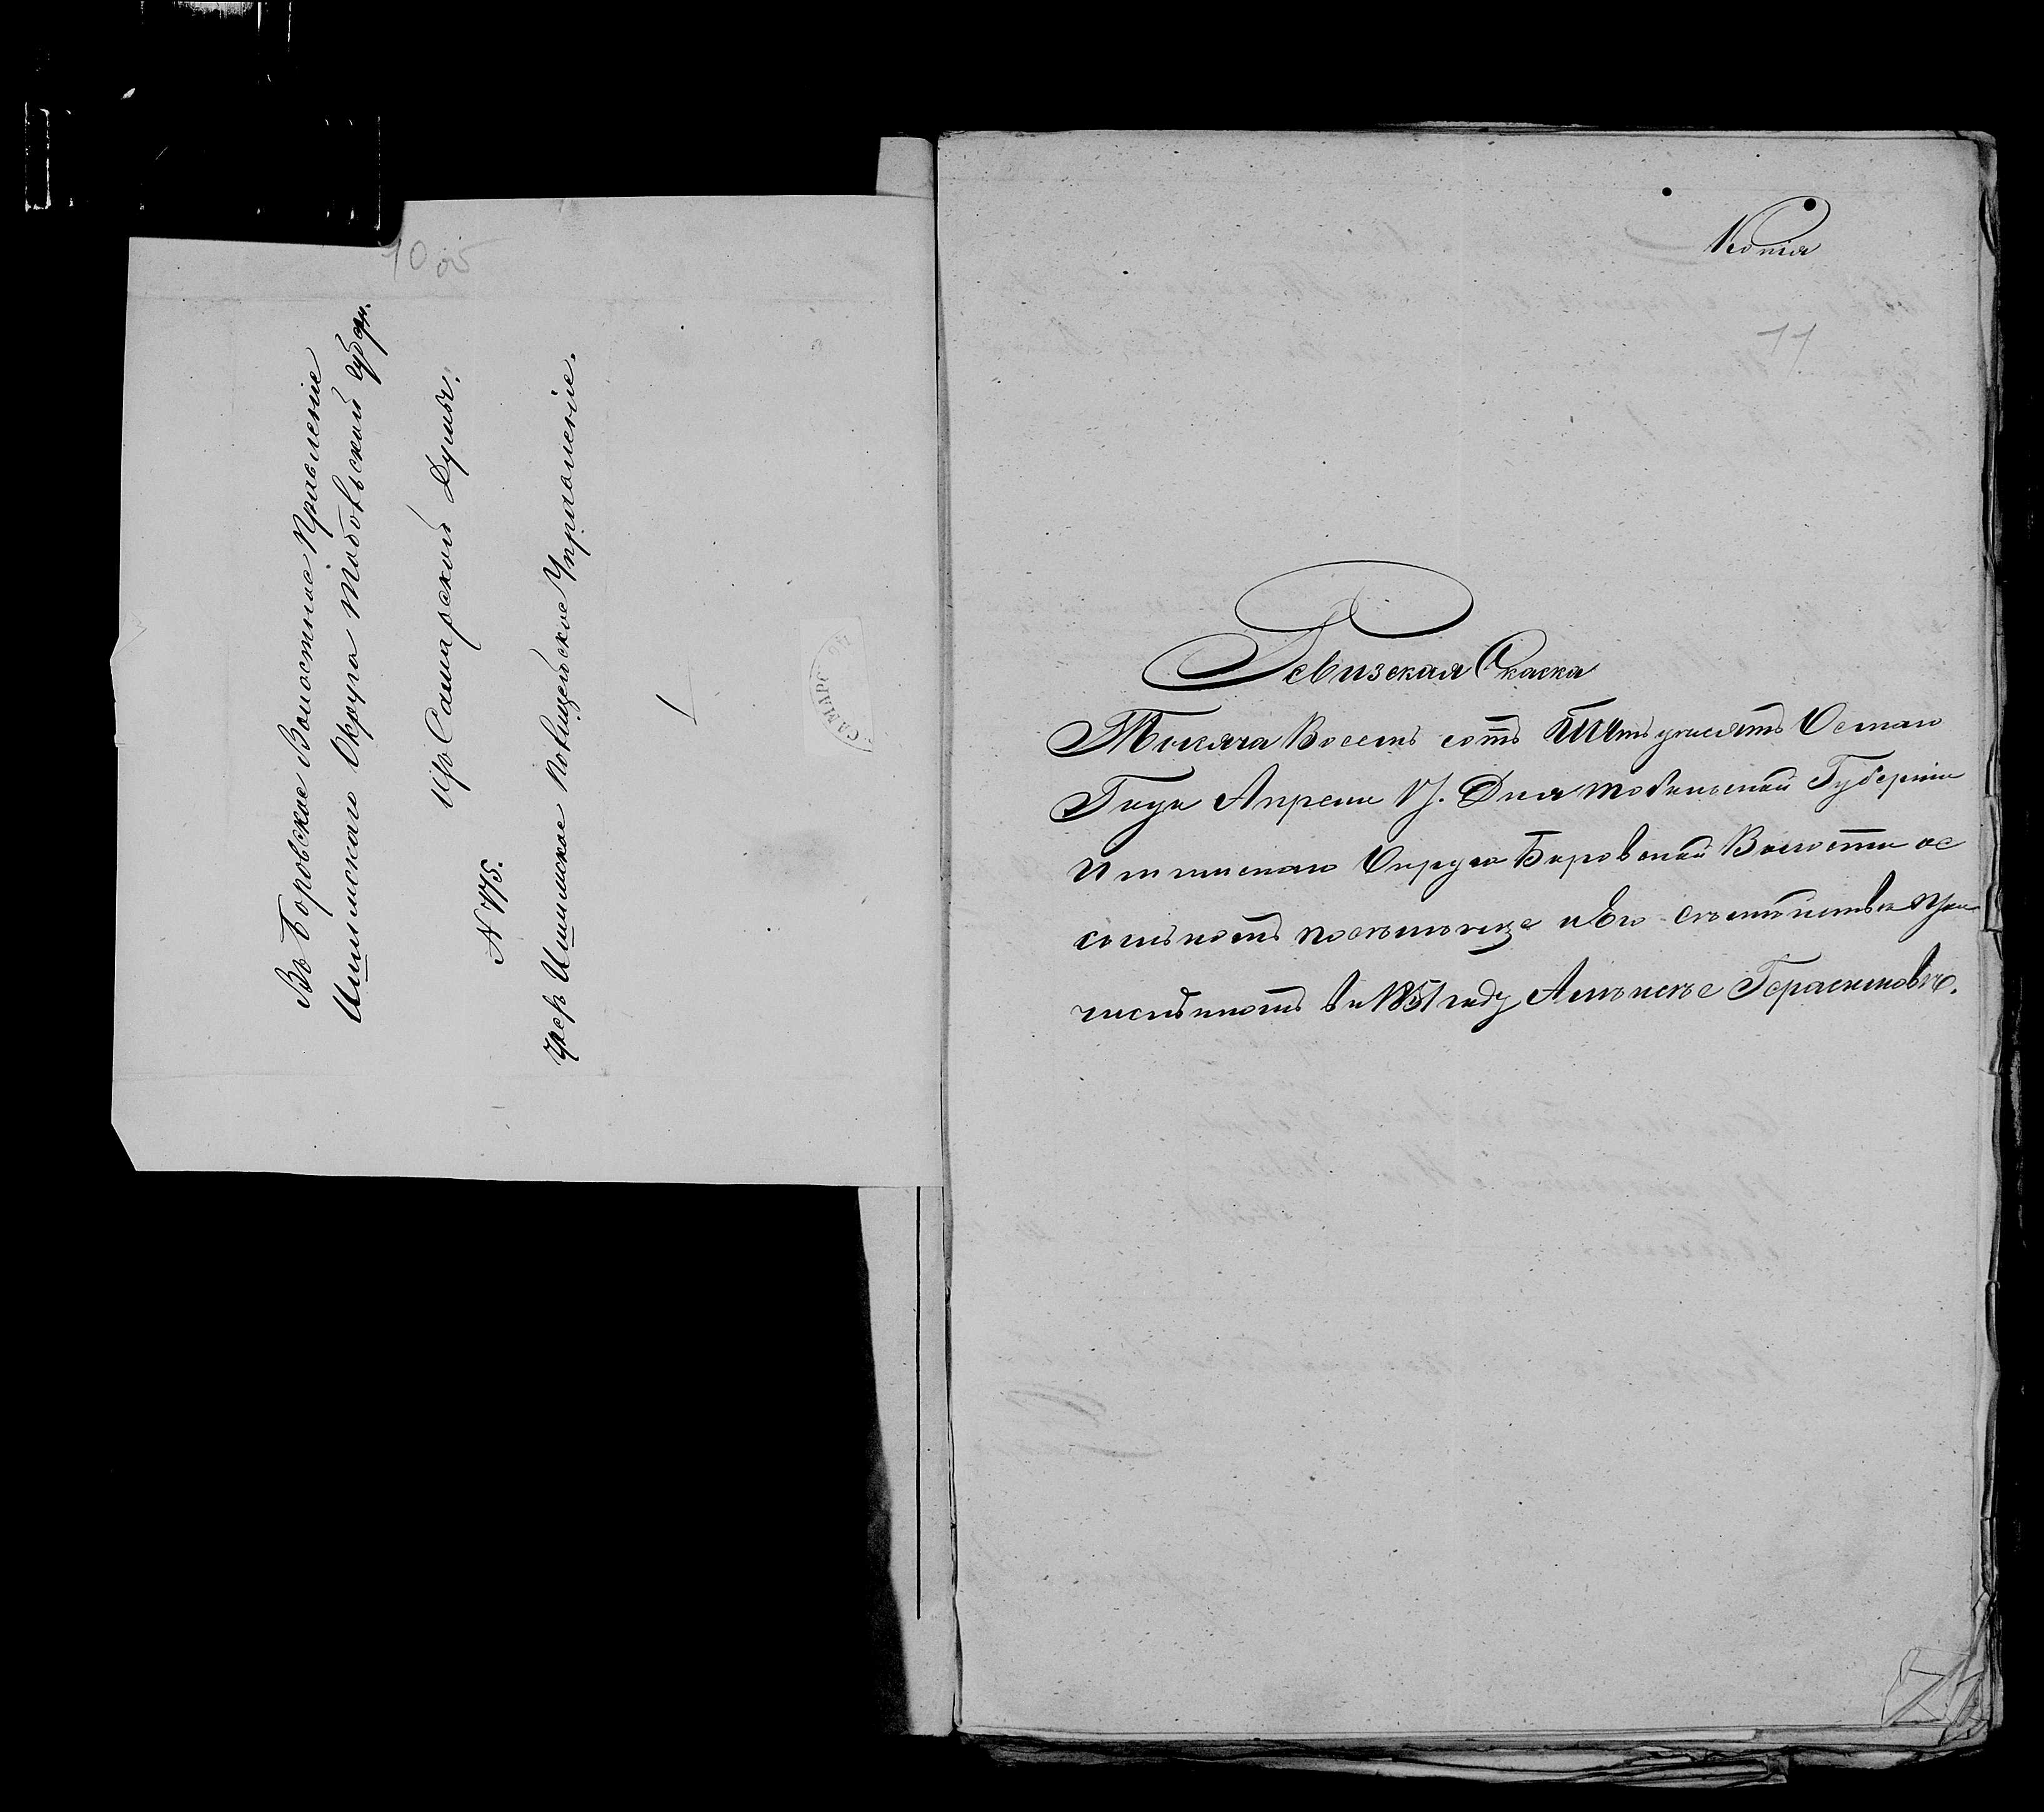 10 об
Въ Боровское Волостное Правленіе
Ишимскаго Округа Тобольской губерн.
Изъ Самарской Думы.
N 775.
Чрезъ Ишимское Полицейское Управленіе.
САМАРС
Копія
11
Ревизская Скаска
Тысяча Восемь сотъ Пятьдесятъ Осмаго
Года Апреля 17. Дня Тобольской Губерніи
Ишимскаго Округа Боровской Волости
и Его при
въ 1851 году Герасимовъ.